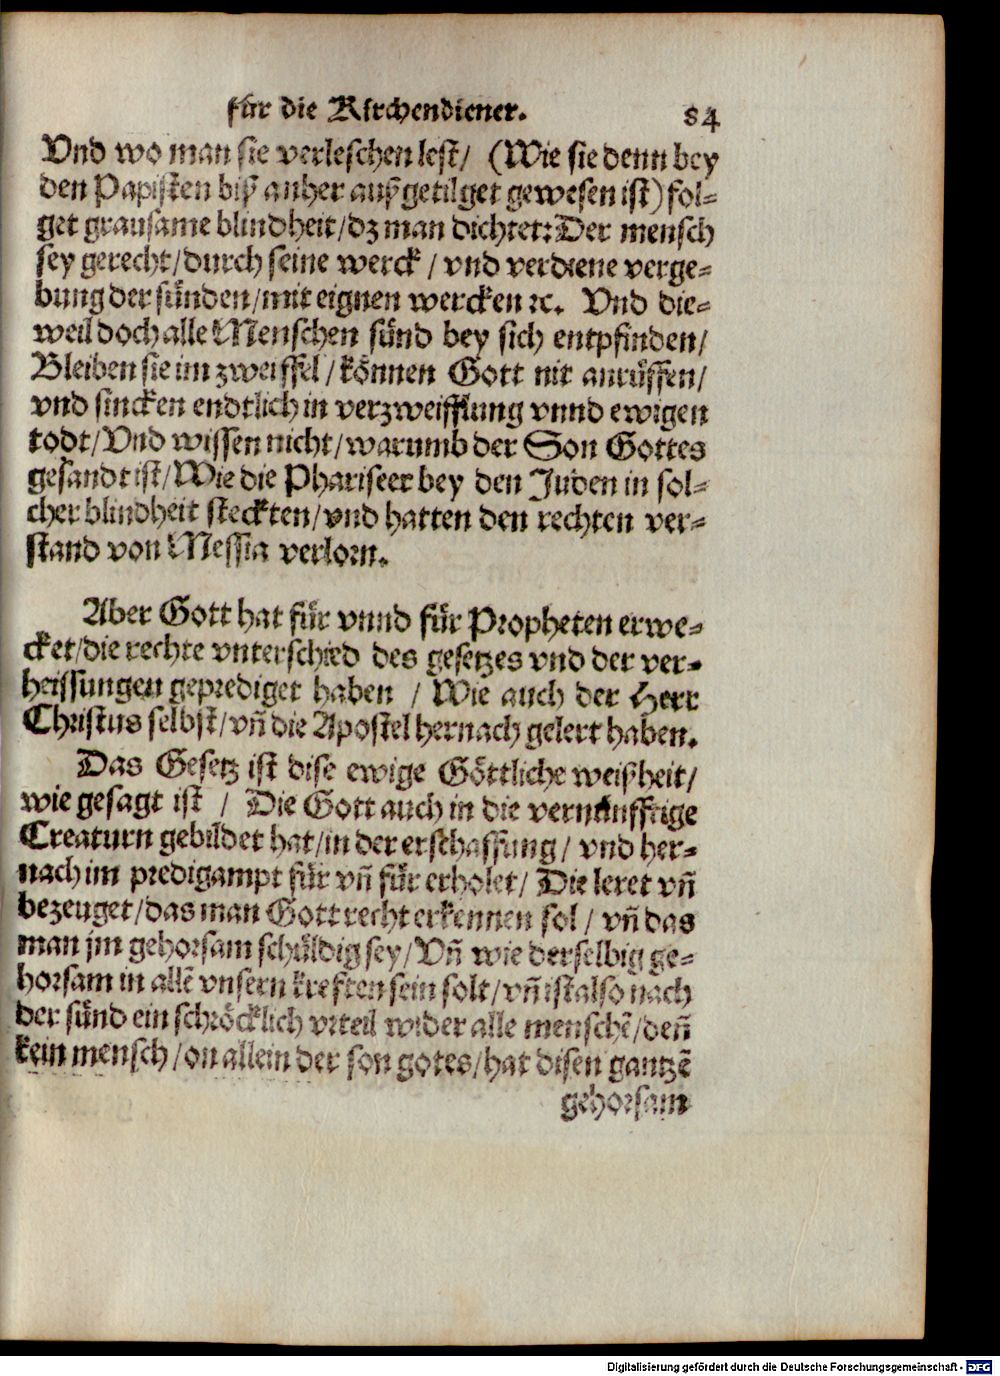 für die Kirchendiener. 84
Vnd wo man sie verleschen lest/ (Wie sie denn bey
den Papisten biß anher außgetilget gewesen ist) fol⸗
get grausame blindheit/dz man dichtet: Der mensch
sey gerecht/durch seine werck / vnd verdiene verge⸗
bung der sünden/mit eignen wercken ꝛc. Vnd die⸗
weil doch alle Menschen sünd bey sich entpfinden/
Bleiben sie im zweiffel/können Gott nit anrüffen/
vnd sincken endtlich in verzweifflung vnnd ewigen
todt/Vnd wissen nicht/warumb der Son Gottes
gesandt ist/Wie die Phariseer bey den Juden in sol⸗
cher blindheit steckten/vnd hatten den rechten ver⸗
stand von Messia verlorn.
Aber Gott hat für vnnd für Propheten erwe⸗
cket/die rechte vnterschied des gesetzes vnd der ver⸗
heissungen geprediget haben / Wie auch der Herr
Christus selbst/vñ die Apostel hernach gelert haben.
Das Gesetz ist dise ewige Göttliche weißheit/
wie gesagt ist / Die Gott auch in die vernünfftige
Creaturn gebildet hat/in der erschaffung/ vnd her⸗
nach im predigampt für vñ für erholet/ Die leret vñ
bezeuget/das man Gott recht erkennen sol/ vñ das
man jm gehorsam schüldig sey/Vñ wie derselbig ge⸗
horsam in allē vnsern kreften sein solt/vñ ist also nach
der sünd ein schröcklich vrteil wider alle menschē/deñ
kein mensch/on allein der son gotes/hat disen gantzē
gehorsam
Digitalisierung gefördert durch die Deutsche Forschungsgemeinschaft - DFG